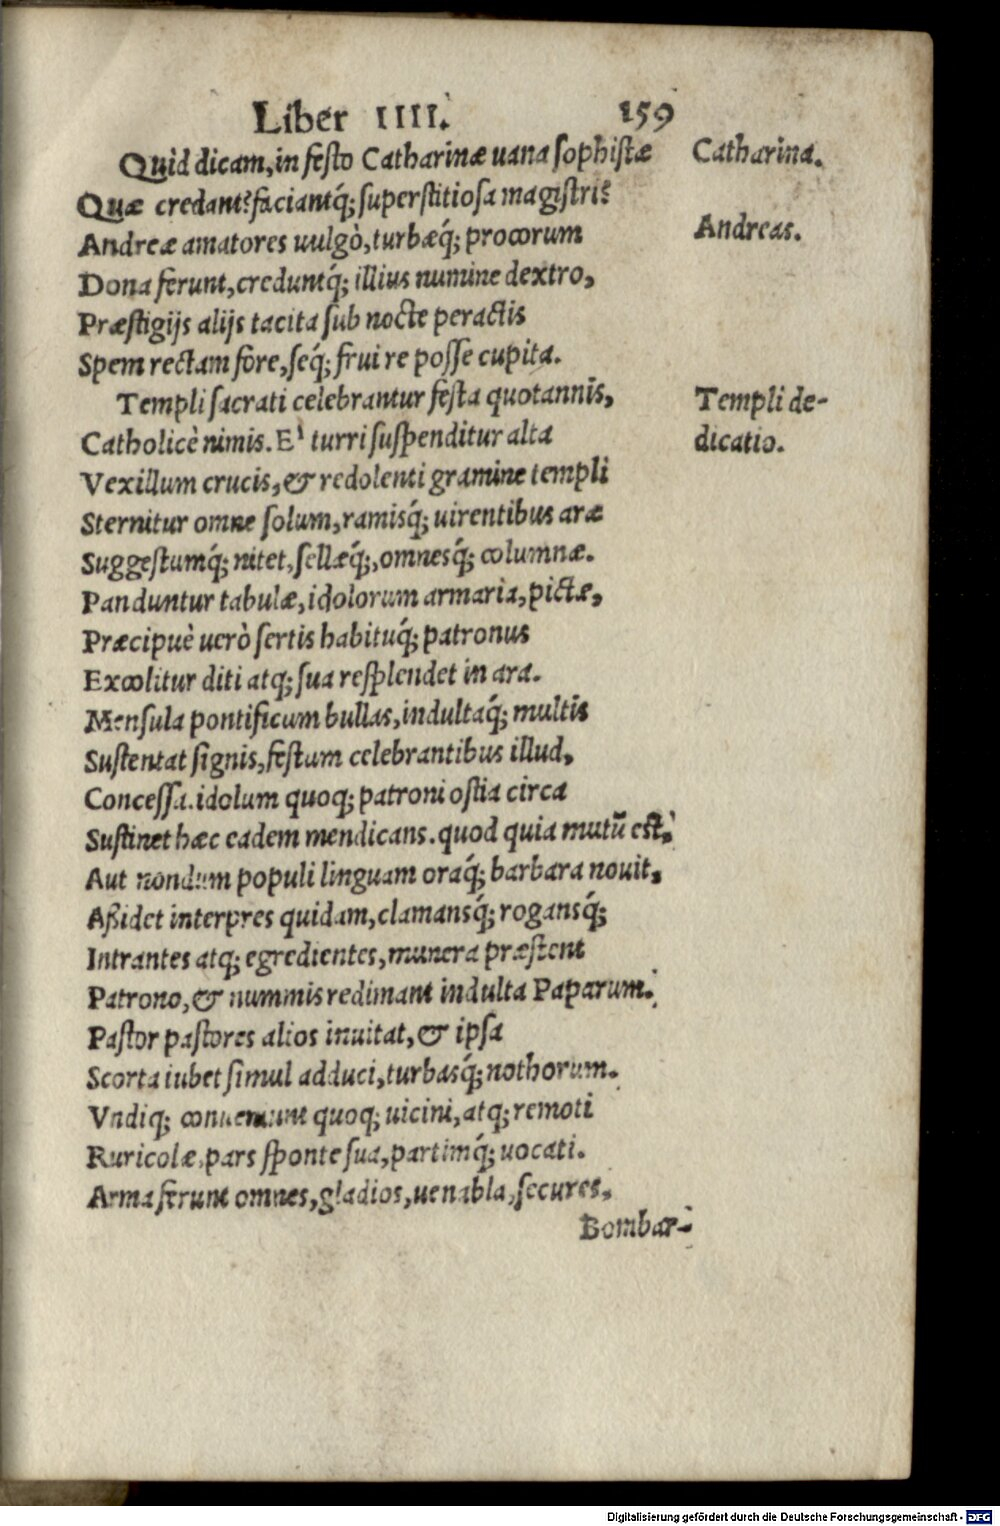 Liber IIII. 159
Quid dicam, in festo Catharinæ uana sophistæ
Catharina.
Quæ credant? faciantq́; superstitiosa magistri?
Andreæ amatores uulgò, turbæq́; procorum
Andreas.
Dona ferunt, creduntq́; illius numine dextro,
Præstigijs alijs tacita sub nocte peractis
Spem rectam fore, seq́; frui re posse cupita.
Templi sacrati celebrantur festa quotannis,
Templi de-
Catholicè nimis. E' turri suspenditur alta
dicatio.
Vexillum crucis, & redolenti gramine templi
Sternitur omne solum, ramisq́; uirentibus aræ
Suggestumq́; nitet, sellæq́;, omnesq́; columnæ.
Panduntur tabulæ, idolorum armaria, pictæ,
Præcipuè uerò sertis habituq́; patronus
Excolitur diti atq; sua resplendet in ara.
Mensula pontificum bullas, indultaq́; multis
Sustentat signis, festum celebrantibus illud,
Concessa. idolum quoq; patroni ostia circa
Sustinet hæc eadem mendicans. quod quia mutū est,
Aut nondum populi linguam oraq́; barbara nouit,
Aßidet interpres quidam, clamansq́; rogansq́;
Intrantes atq; egredientes, munera præstent
Patrono, & nummis redimant indulta Paparum.
Pastor pastores alios inuitat, & ipsa
Scorta iubet simul adduci, turbasq́; nothorum.
Vndiq; conueniunt quoq; uicini, atq; remoti
Ruricolæ, pars sponte sua, partimq́; uocati.
Arma ferunt omnes, gladios, uenabla, secures.
Bombar-
Digitalisierung gefördert durch die Deutsche Forschungsgemeinschaft - DFG